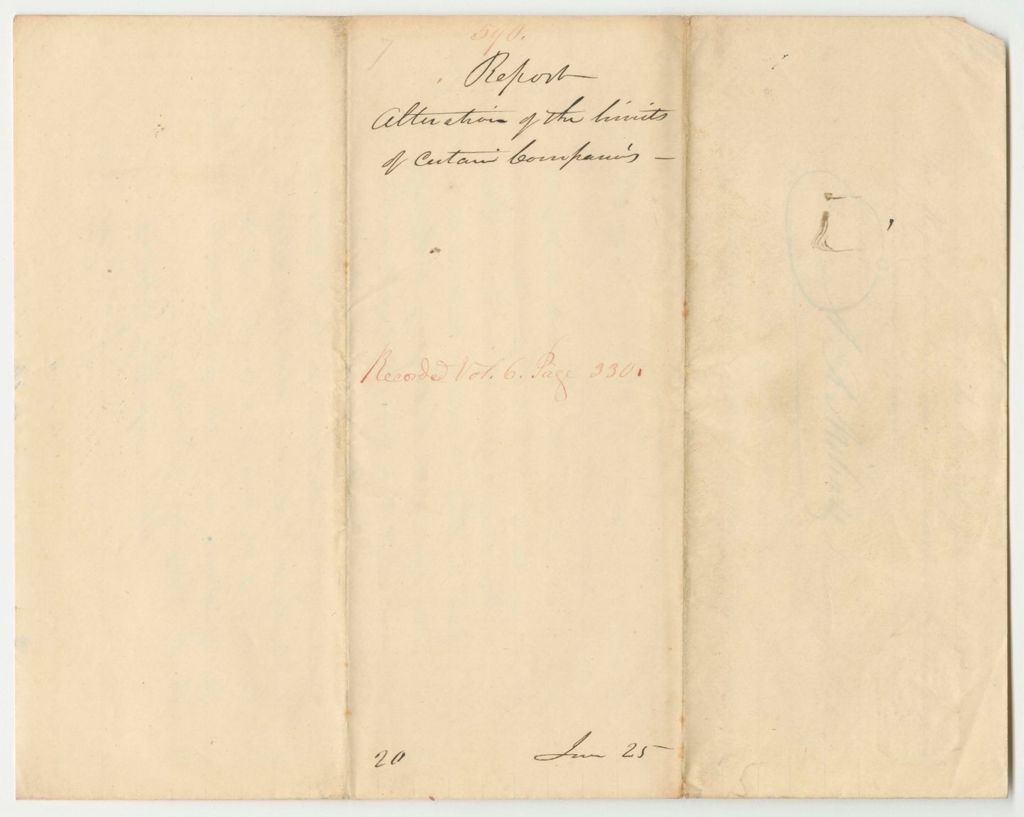 590.
Report
Alteration of the limits
of certain Companies —
Recorded Vol. 6. Page 330.
20 June 25